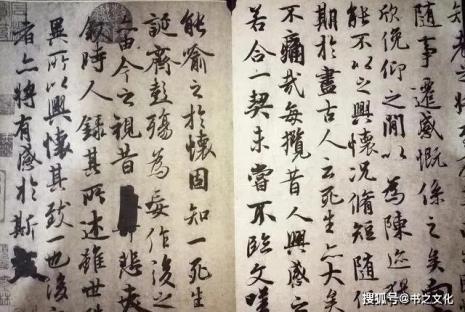 知老之將
隨事遷感慨係之矣
欣俛仰之間以為陳迹
能不以之興懷況脩短隨化
期於盡古人云死生亦大矣
不痛哉每攬昔人興感之
若合一契未嘗不臨文嗟
能喻之於懷固知一死生
誕齊彭殤為妄作後之
由今之視昔悲夫
敘時人錄其所述雖世殊
異所以興懷其致一也後
者亦將有感於斯文
搜狐号@书之文化